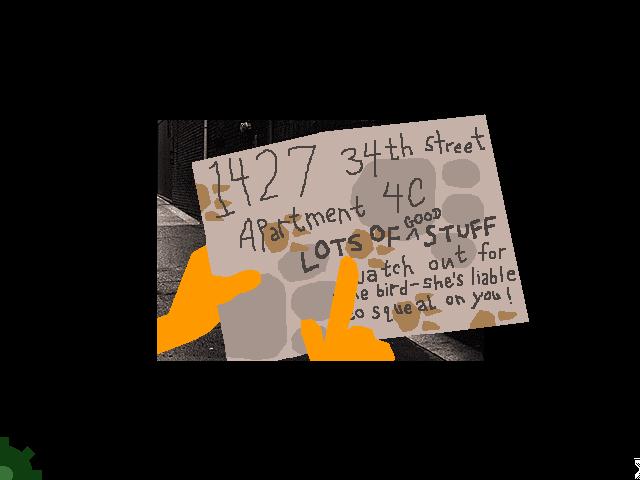 1427 34th street
Apartment 4C
LOTS OF GOOD STUFF
atch out for
e bird-she's liable
o squeal on you!